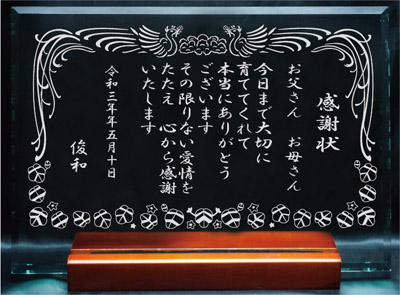 感謝状
お父さん　お母さん
今日まで大切に
育ててくれて
本当にありがとう
ございます
その限りない愛情を
たたえ　心から感謝
いたします
令和三年五月十日
俊和